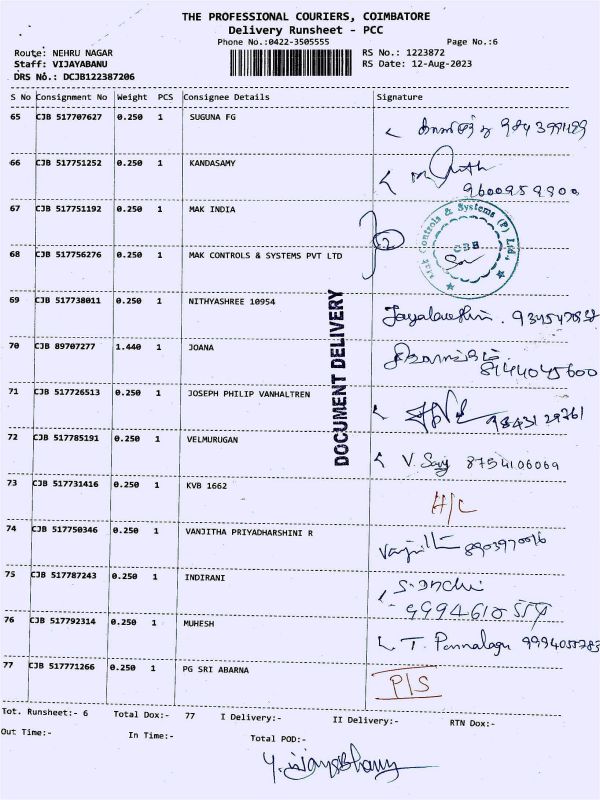 THE PROFESSIONAL COURIERS, COIMBATORE
Delivery Runsheet - PCC
Phone No.:0422-3505555 Page No.:6
Route: NEHRU NAGAR RS No.: 1223872
Staff: VIJAYABANU RS Date: 12-Aug-2023
DRS No.: DCJB122387206
S No Consignment No Weight PCS Consignee Details Signature
65 CJB 517707627 0.250 1 SUGUNA FG
66 CJB 517751252 0.250 1 KANDASAMY
9600959900
67 CJB 517751192 0.250 1 MAK INDIA
Mak Controls & Systems (P) Ltd., CBE
2
68 CJB 517756276 0.250 1 MAK CONTROLS & SYSTEMS PVT LTD
69 CJB 517738011 0.250 1 NITHYASHREE 10954
70 CJB 89707277 1.440 1 JOANA
8144045600
DOCUMENT DELIVERY
71 CJB 517726513 0.250 1 JOSEPH PHILIP VANHALTREN
9843129761
72 CJB 517785191 0.250 1 VELMURUGAN V. 8754106069
73 CJB 517731416 0.250 1 KVB 1662 H/C
74 CJB 517750346 0.250 1 VANJITHA PRIYADHARSHINI R
75 CJB 517787243 0.250 1 INDIRANI
76 CJB 517792314 0.250 1 MUHESH T. 9994055783
77 CJB 517771266 0.250 1 PG SRI ABARNA P/S
Tot. Runsheet:- 6 Total Dox:- 77 I Delivery:- II Delivery:- RTN Dox:-
Out Time:- In Time:- Total POD:-